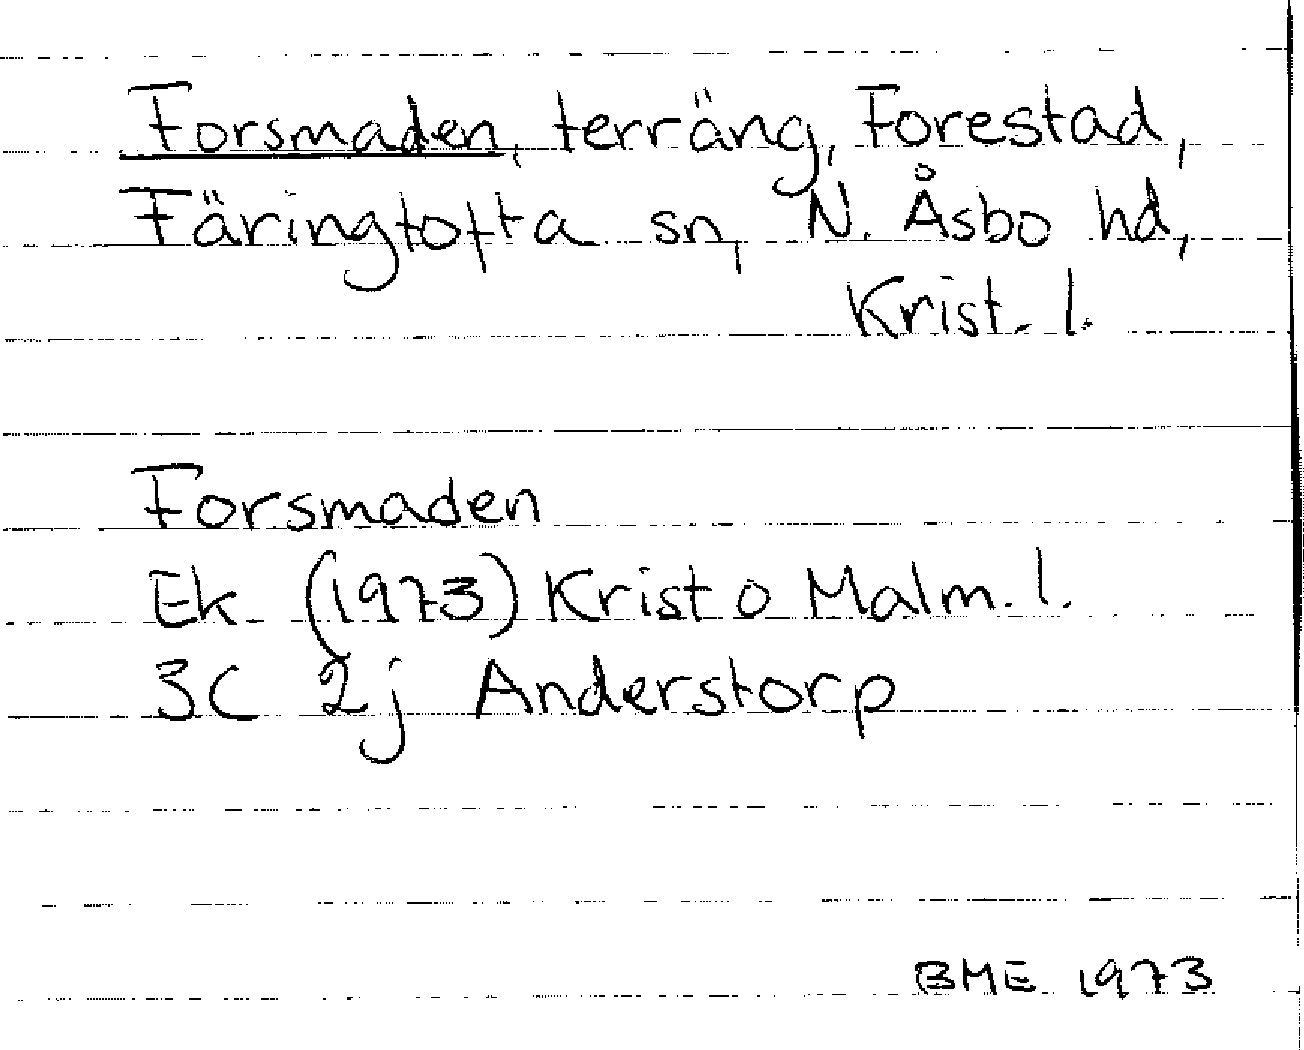 Forsmaden, terräng, Forestad,
Färingtofta sn, N. Åsbo hd,
Krist. l.
Forsmaden
Ek (1973) Krist o Malm. l.
3C 2j Anderstorp
BME 1973